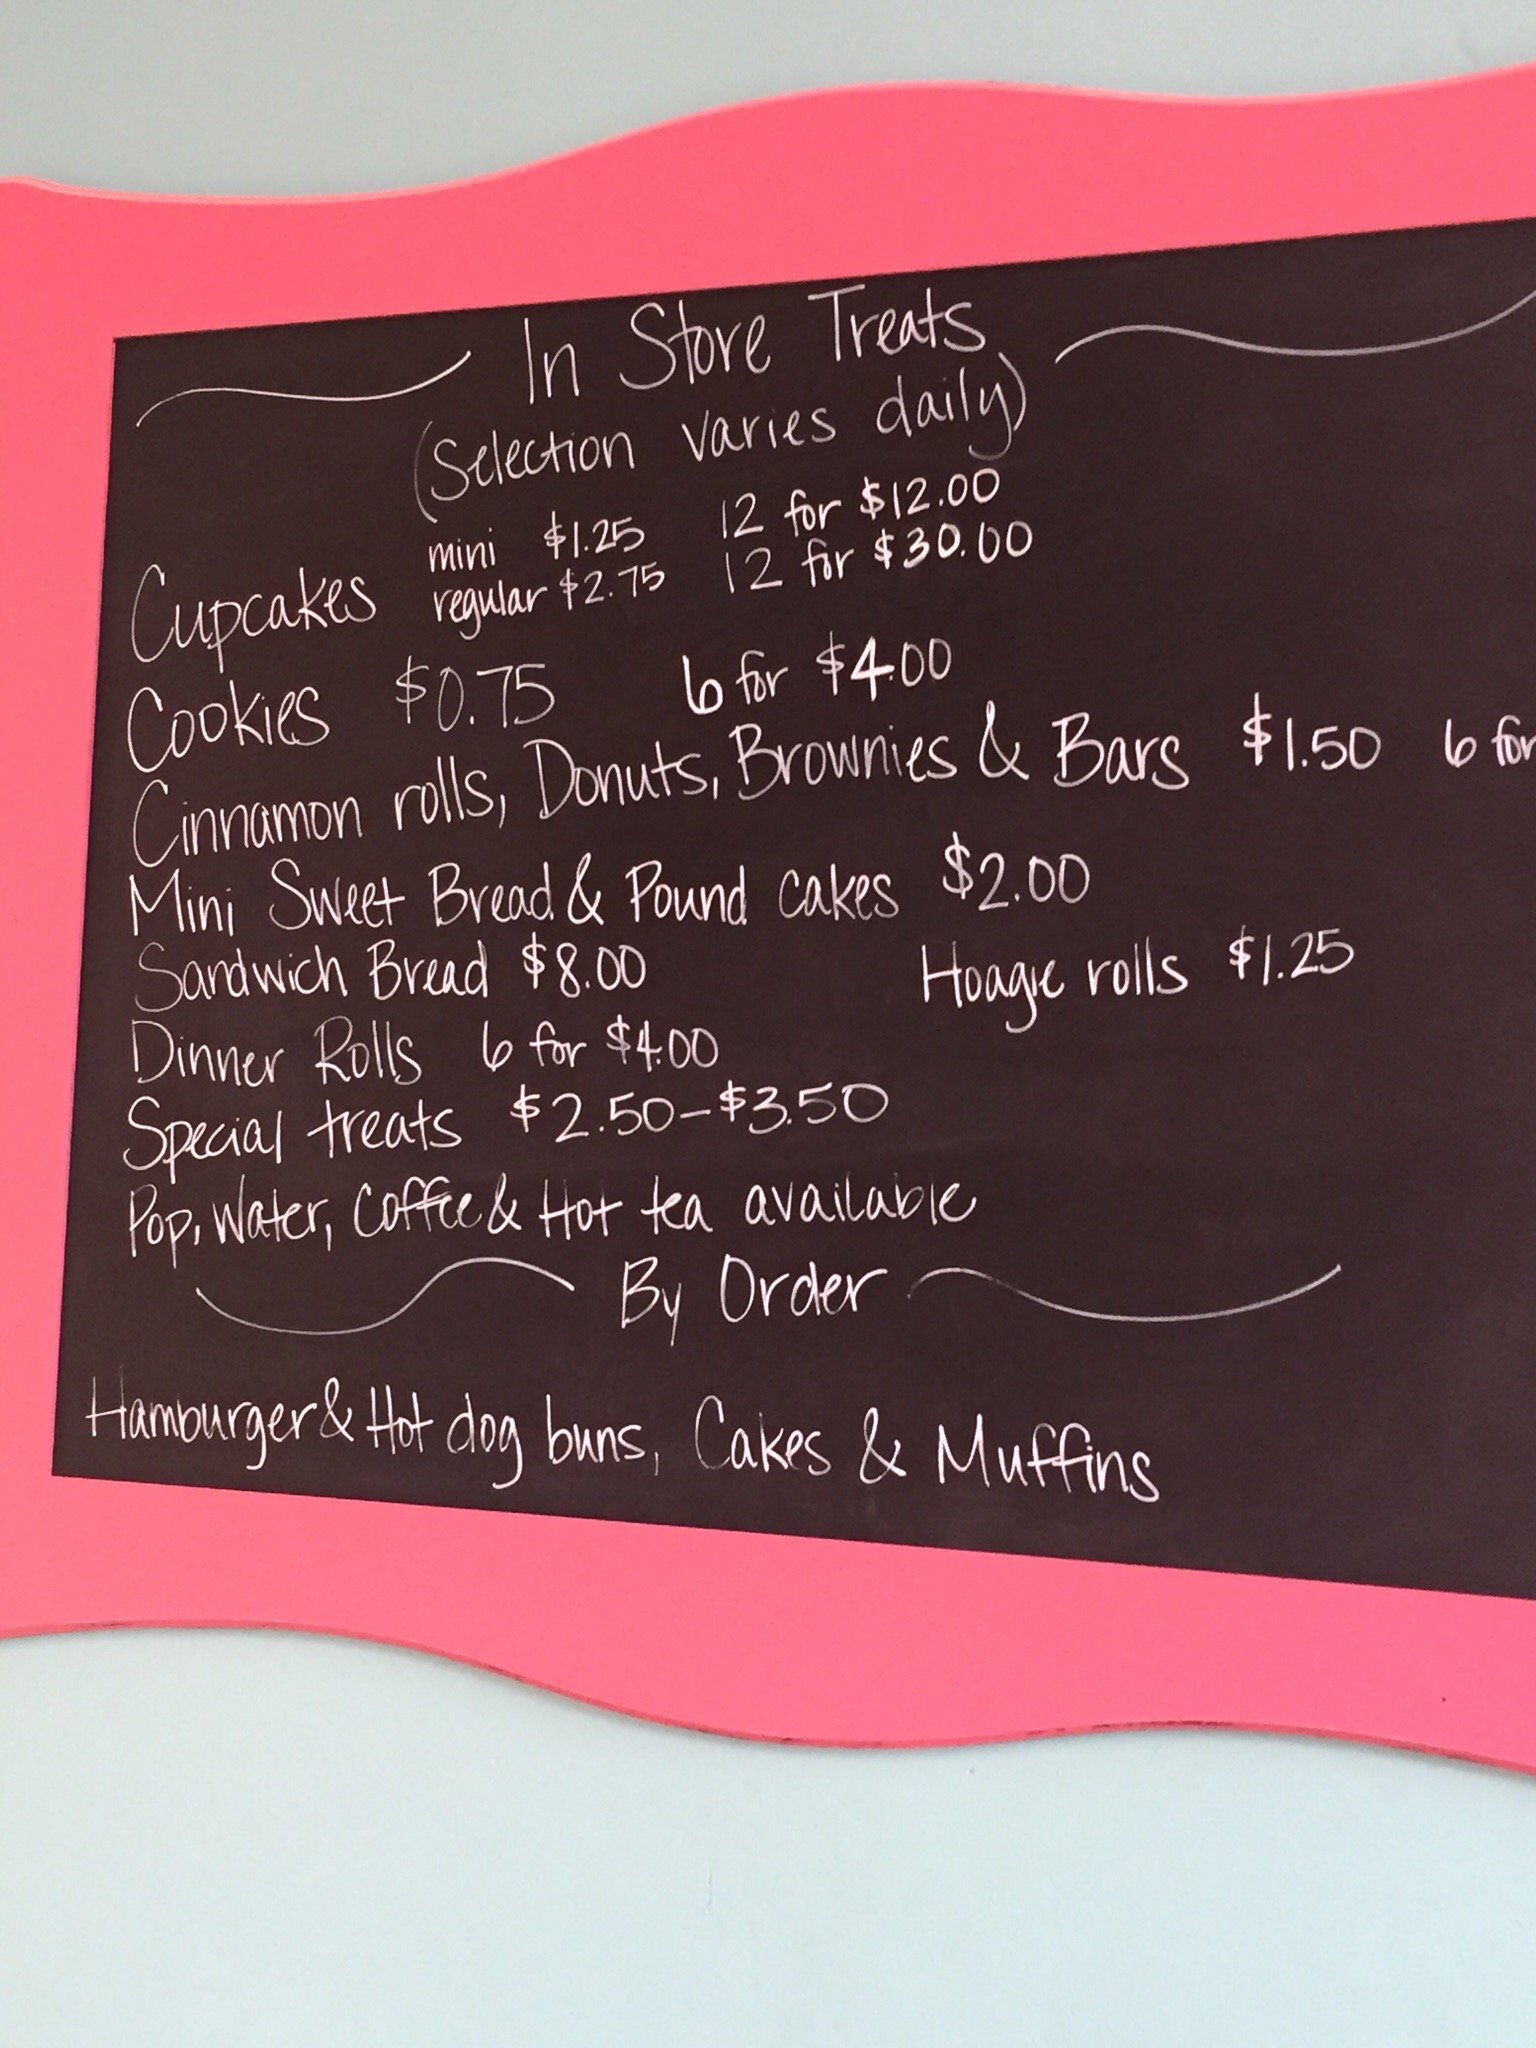 In Store Treats
(Selection varies daily)
Cupcakes mini $1.25 12 for $12.00
regular $2.75 12 for $30.00
Cookies $0.75 6 for $4.00
Cinnamon rolls, Donuts, Brownies & Bars $1.50 6 for
Mini Sweet Bread & Pound cakes $2.00
Sandwich Bread $8.00 Hoagie rolls $1.25
Dinner Rolls 6 for $4.00
Special treats $2.50-$3.50
Pop, Water, Coffee & Hot tea available
By Order
Hamburger & Hot dog buns, Cakes & Muffins